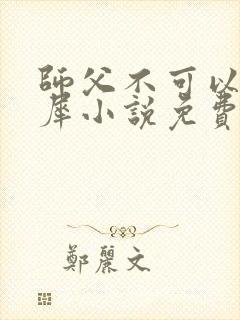 師父不可以
犀小說免費
鄭麗文